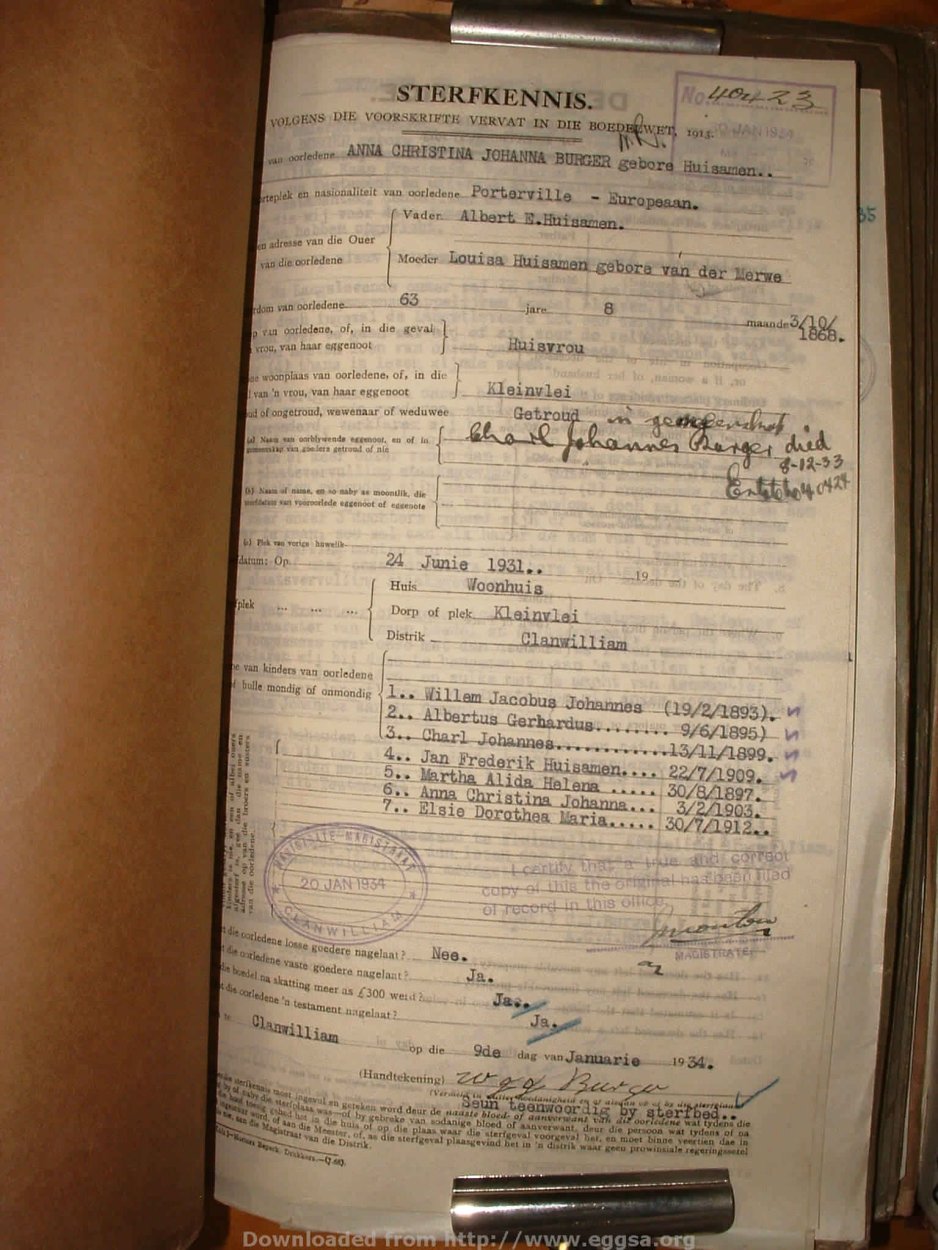 STERFKENNIS.
No. 40423
VOLGENS DIE VOORSKRIFTE VERVAT IN DIE BOEDELWET, 1913.
JAN 1934
van oorledene ANNA CHRISTINA JOHANNA BURGER gebore Huisamen..
orteplek en nasionaliteit van oorledene Porterville - Europeaan.
Vader Albert E.Huisamen.
en adresse van die Ouer
van die oorledene
Moeder Louisa Huisamen gebore van der Merwe
rdom van oorledene 63 jare 8 maande 3/10/
1868.
p van oorledene, of, in die geval
vrou, van haar eggenoot
Huisvrou
ne woonplaas van oorledene, of, in die
l van 'n vrou, van haar eggenoot
Kleinvlei
ud of ongetroud, wewenaar of weduwee Getroud in gemeenskap
(a) Naam van oorblywende eggenoot, en of in
gemeenskap van goedere getroud of nie
Charl Johannes Burger died
8-12-33
Estate No 40424
(b) Naam of name, en so naby as moontlik, die
sterfdatum van vooroorlede eggenoot of eggenote
(c) Plek van vorige huwelik
datum: Op 24 Junie 1931.. 19
Huis Woonhuis
fplek ... ... ...
Dorp of plek Kleinvlei
Distrik Clanwilliam
e van kinders van oorledene
f hulle mondig of onmondig
1.. Willem Jacobus Johannes (19/2/1893).
2.. Albertus Gerhardus........ 9/6/1895)
3.. Charl Johannes............13/11/1899.
4.. Jan Frederik Huisamen.... 22/7/1909.
5.. Martha Alida Helena ..... 30/8/1897.
6.. Anna Christina Johanna... 3/2/1903.
7.. Elsie Dorothea Maria..... 30/7/1912..
MAGISTRAAT
20 JAN 1934
CLANWILLIAM
I certify that a true and correct
copy of this the original has been filed
of record in this office.
MAGISTRATE
t die oorledene losse goedere nagelaat? Nee.
t die oorledene vaste goedere nagelaat? Ja.
die boedel na skatting meer as £300 werd? Ja..
t die oorledene 'n testament nagelaat? Ja.
te Clanwilliam op die 9de dag van Januarie 1934.
(Handtekening) W J J Burger
Seun teenwoordig by sterfbed..
die sterfkennis moet ingevul en geteken word deur die naaste bloed- of aanverwant van die oorledene wat tydens die
of naby die sterfplaas was—of by gebreke van sodanige bloed of aanverwant, deur die persoon wat tydens of na
die hoof toesig gehad het in die huis of op die plaas waar die sterfgeval voorgeval het, en moet binne veertien dae in
word of aan die Meester, of, as die sterfgeval plaasgevind het in 'n distrik waar geen prowinsiale regeringssetel
nie, aan die Magistraat van die Distrik.
Beperk, Drukkers.
35
Downloaded from http://www.eggsa.org